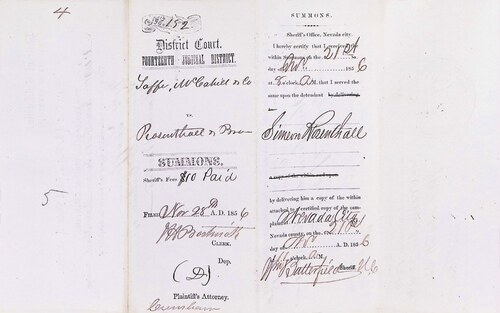 4
No. 152
District Court.
FOURTEENTH JUDICIAL DISTRICT.
Jaffe, McCahill & Co
vs.
Rosenthall & Bro
SUMMONS.
Sheriff's Fees $10 Paid
FILED Nov 28th A. D. 1856
CLERK.
Dep.
(D)
Plaintiff's Attorney.
Crenshaw
5
SUMMONS.
Sheriff's Office, Nevada city.
I hereby certify that I received the
within Summons on the 21st
day of Nov. 1856
at 8 o'clock, A.M. that I served the
same upon the defendant by delivering
Simeon Rosenthall
a copy of the within and upon
by delivering him a copy of the within
attached to a certified copy of the com-
plaint Nevada City
Nevada county, on the 21st
day of Nov A. D. 1856
o'clock, A.M.
Wm Butterfield